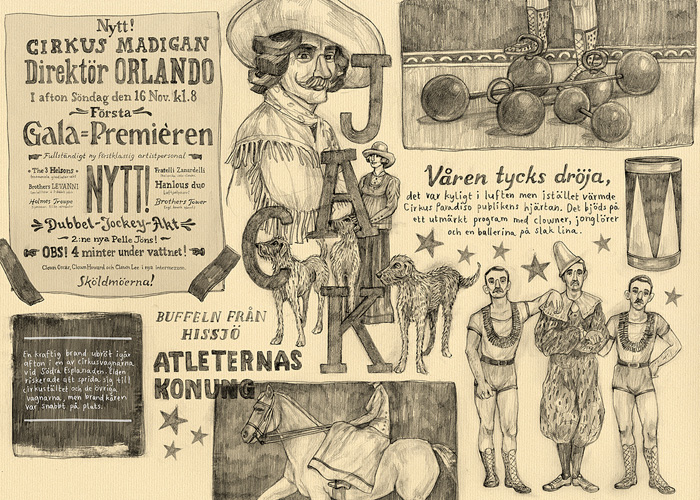 Nytt!
CIRKUS MADIGAN
Direktör ORLANDO
I afton Söndag den 16 Nov. kl.8
Första
Gala=Premièren
Fullständigt ny förstklassig artistpersonal
The 3 Helsons
Fratelli Zanardelli
Brothers LEVANNI
NYTT!
Hanlous duo
Holmes Troupe
Brothers Tower
Dubbel-Jockey-Akt
2:ne nya Pelle Jöns!
OBS! 4 minter under vattnet!
Clown Oscar, Clown Howard och Clown Lee i nya intermezzon.
Sköldmöerna!
JACK
BUFFELN FRÅN
HISSJÖ
ATLETERNAS
KONUNG
En kraftig brand utbröt igår
afton i en av cirkusvagnarna
vid Södra Esplanaden. Elden
riskerade att sprida sig till
cirkustältet och de övriga
vagnarna, men brandkåren
var snabbt på plats.
Våren tycks dröja,
det var kyligt i luften men istället värmde
Cirkus Paradiso publikens hjärtan. Det bjöds på
ett utmärkt program med clowner, jonglörer
och en ballerina på slak lina.